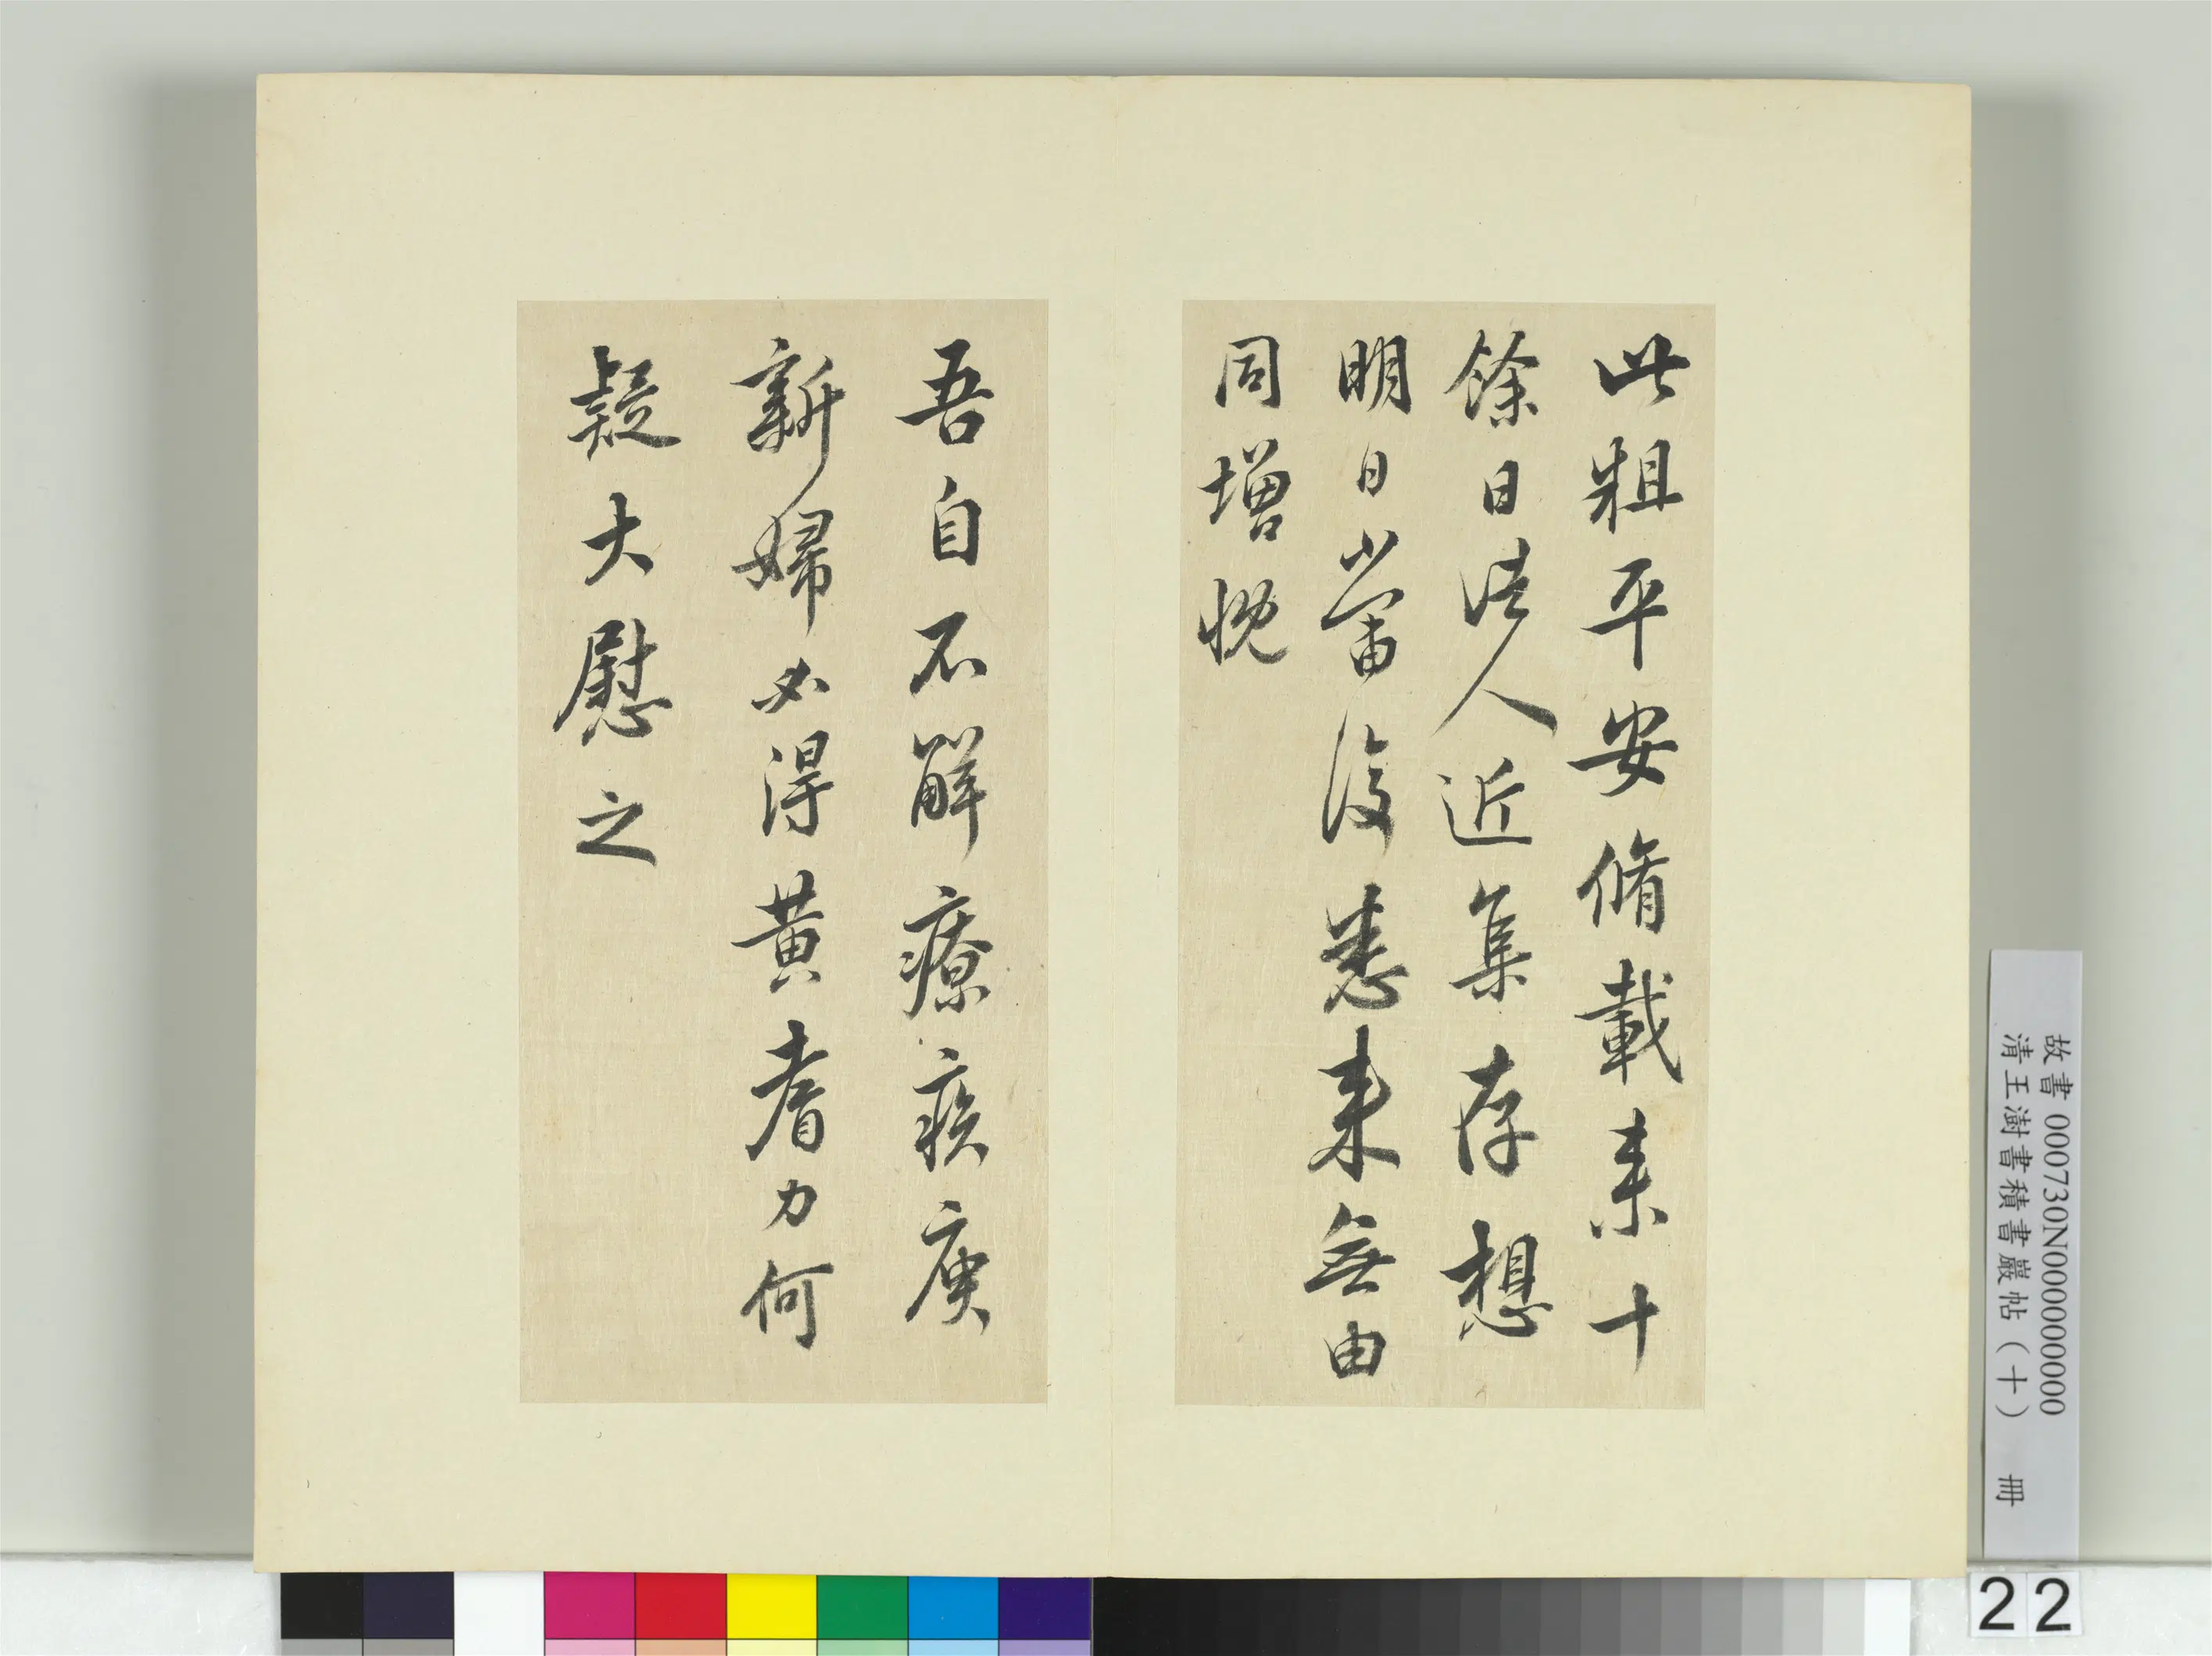 此粗平安脩載来十
餘日諸人近集存想
明日當復悉来無由
同增慨
吾自不解療疾庾
新婦必得黄耆力何
疑大慰之
故書 000730N000000000
清王澍書積書巖帖（十） 冊
22